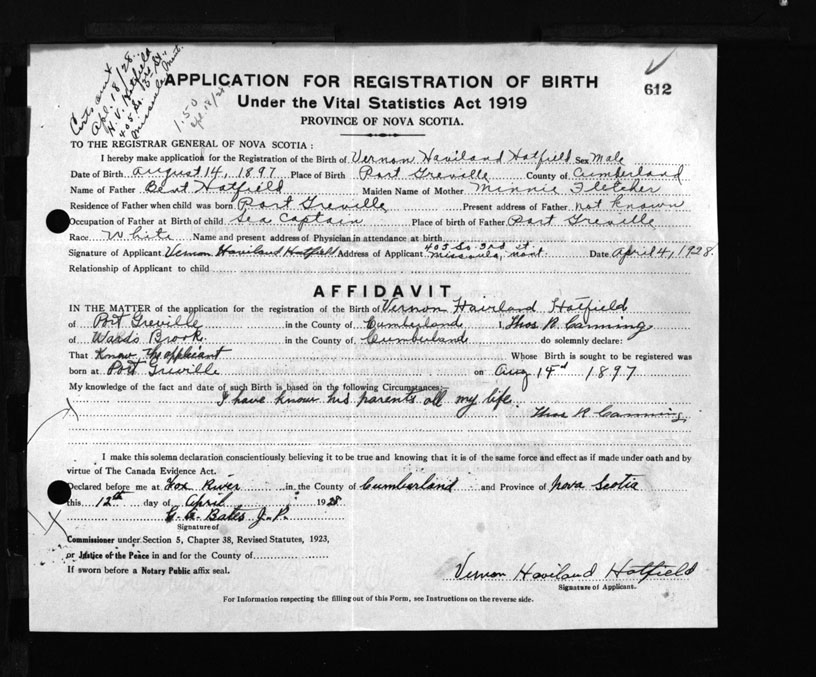 Cert. sent
Apl. 18/28
H. V. Hatfield
405 So. 3rd St.
Missoula, Mont.
1.50
Apl 18/28
612
APPLICATION FOR REGISTRATION OF BIRTH
Under the Vital Statistics Act 1919
PROVINCE OF NOVA SCOTIA.
TO THE REGISTRAR GENERAL OF NOVA SCOTIA:
I hereby make application for the Registration of the Birth of Vernon Haviland Hatfield Sex Male
Date of Birth August 14, 1897 Place of Birth Port Greville County of Cumberland
Name of Father Bent Hatfield Maiden Name of Mother Minnie Fletcher
Residence of Father when child was born Port Greville Present address of Father not known
Occupation of Father at Birth of child Sea Captain Place of birth of Father Port Greville
Race White Name and present address of Physician in attendance at birth
Signature of Applicant Vernon Haviland Hatfield Address of Applicant 403 So. 3rd st. Missoula, Mont Date April 4, 1928
Relationship of Applicant to child
AFFIDAVIT
IN THE MATTER of the application for the registration of the Birth of Vernon Haviland Hatfield
of Port Greville in the County of Cumberland I, Thos R Canning
of Wards Brook in the County of Cumberland do solemnly declare:
That Know Thy applicant Whose Birth is sought to be registered was
born at Port Greville on Aug 14th 1897
My knowledge of the fact and date of such Birth is based on the following Circumstances:—
I have know his parents all my life.
Thos R Canning
I make this solemn declaration conscientiously believing it to be true and knowing that it is of the same force and effect as if made under oath and by
virtue of The Canada Evidence Act.
Declared before me at Fox River in the County of Cumberland and Province of Nova Scotia
this 12th day of April 1928
E. A. Bates J. P.
Signature of
Commissioner under Section 5, Chapter 38, Revised Statutes, 1923,
or Justice of the Peace in and for the County of
If sworn before a Notary Public affix seal.
Vernon Haviland Hatfield
Signature of Applicant.
For Information respecting the filling out of this Form, see Instructions on the reverse side.